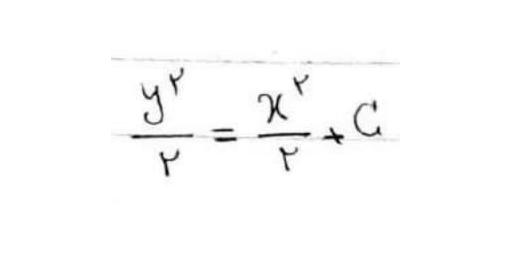 y^۲/۲ = x^۲/۲ + C